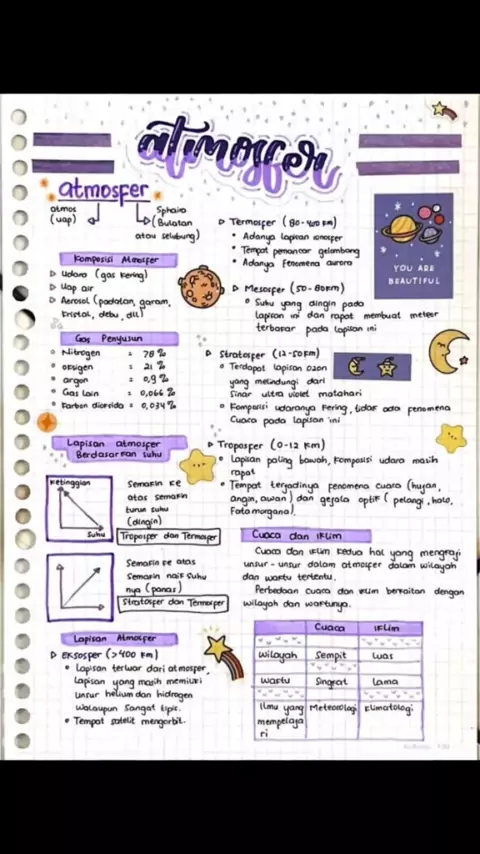 atmosfer
atmosfer
atmos
(uap)
Sphaira
(Bulatan
atau selubung)
Komposisi Atmosfer
Udara (gas kering)
Uap air
Aerosol (padatan, garam,
kristal, debu, dll)
Gas Penyusun
Nitrogen = 78 %
oksigen = 21 %
argon = 0,9 %
Gas lain = 0,066 %
Karbon dioksida = 0,034 %
Lapisan atmosfer
Berdasarkan suhu
Ketinggian
Suhu
Semakin ke
atas semakin
turun suhu
(dingin)
Troposfer dan Termosfer
Semakin ke atas
semakin naik suhu
nya (panas)
Stratosfer dan Termosfer
Lapisan Atmosfer
Eksosfer (>400 km)
Lapisan terluar dari atmosfer,
lapisan yang masih memiliki
unsur helium dan hidrogen
walaupun sangat tipis.
Tempat satelit mengorbit.
Termosfer (80-400 km)
Adanya lapisan ionosfer
Tempat pemancar gelombang
Adanya fenomena aurora
Mesosfer (50-80km)
Suhu yang dingin pada
lapisan ini dan rapat membuat meteor
terbakar pada lapisan ini
YOU ARE
BEAUTIFUL
Stratosfer (12-50km)
Terdapat lapisan ozon
yang melindungi dari
Sinar ultra violet matahari
Komposisi udaranya kering, tidak ada fenomena
Cuaca pada lapisan ini
Troposfer (0-12 km)
Lapisan paling bawah, komposisi udara masih
rapat
Tempat terjadinya fenomena cuaca (hujan,
angin, awan) dan gejala optik (pelangi, halo,
Fatamorgana).
Cuaca dan iklim
Cuaca dan iklim kedua hal yang mengkaji
unsur-unsur dalam atmosfer dalam wilayah
dan waktu tertentu.
Perbedaan cuaca dan iklim berkaitan dengan
wilayah dan waktunya.
Cuaca Iklim
wilayah Sempit Luas
waktu Singkat Lama
Ilmu yang Meteorologi Klimatologi
mempelaja
ri